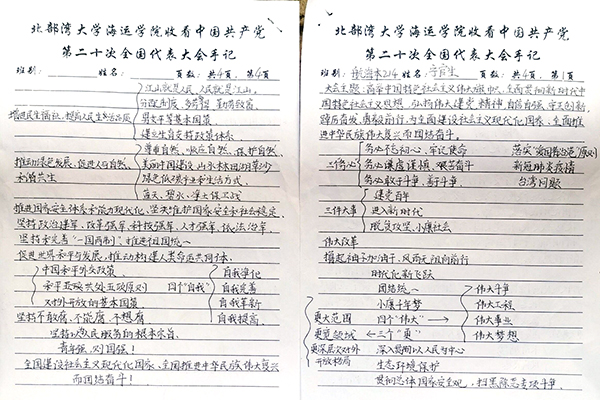 北部湾大学海运学院收看中国共产党
第二十次全国代表大会手记
班别: 姓名: 页数: 共4页 第4页
江山就是人民 人民就是江山。
分配制度、多劳多得 勤劳致富
增进民生福祉,提高人民生活品质
男女平等基本国策
建立生育支持政策体系
尊重自然、顺应自然、保护自然
推动绿色发展,促进人与自然
和谐共生
美丽中国建设 山水林田湖草沙
绿色低碳产业和生活方式
蓝天、碧水、净土保卫战
推进国家安全体系和能力现代化,坚决维护国家安全和社会稳定
坚持政治建军、改革强军、科技强军、人才强军、依法治军
坚持和完善“一国两制”,推进祖国统一
促进世界和平与发展,推动构建人类命运共同体
中国和平外交政策
和平共处五项原则
对外开放的基本国策
四个“自我”
自我净化
自我完善
自我革新
自我提高
坚持不敢腐、不能腐、不想腐
坚持以人民服务的根本宗旨
青年强,则国强!
全国建设社会主义现代化国家、全面推进中华民族伟大复兴
而团结奋斗!
北部湾大学海运学院收看中国共产党
第二十次全国代表大会手记
班别: 航海本214 姓名: 页数: 共4页 第1页
大会主题:高举中国特色社会主义伟大旗帜、全面贯彻新时代中
国特色社会主义思想,弘扬伟大建党精神,自信自强、守正创新,
踔厉奋发、勇毅前行,为全面建设社会主义现代化国家、全面推
进中华民族伟大复兴而团结奋斗。
三个务必
务必不忘初心、牢记使命
务必谦虚谨慎、艰苦奋斗
务必敢于斗争、善于斗争
落实“爱国者治港”原则
新冠肺炎疫情
台湾问题
三件大事
建党百年
进入新时代
脱贫攻坚、小康社会
伟大改革
撸起袖子加油干,风雨无阻向前行
时代化新飞跃
团结统一
小康千年梦
四个“伟大”
伟大斗争
伟大工程
伟大事业
伟大梦想
更大范围
更宽领域
更深层次对外
开放格局
三个“更”
深入贯彻以人民为中心
生态环境保护
贯彻总体国家安全观,扫黑除恶专项斗争